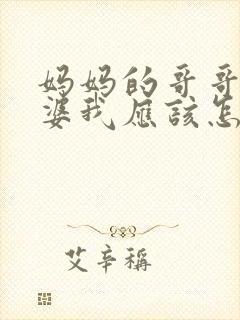 妈妈的哥哥
婆我应该怎
艾辛稱